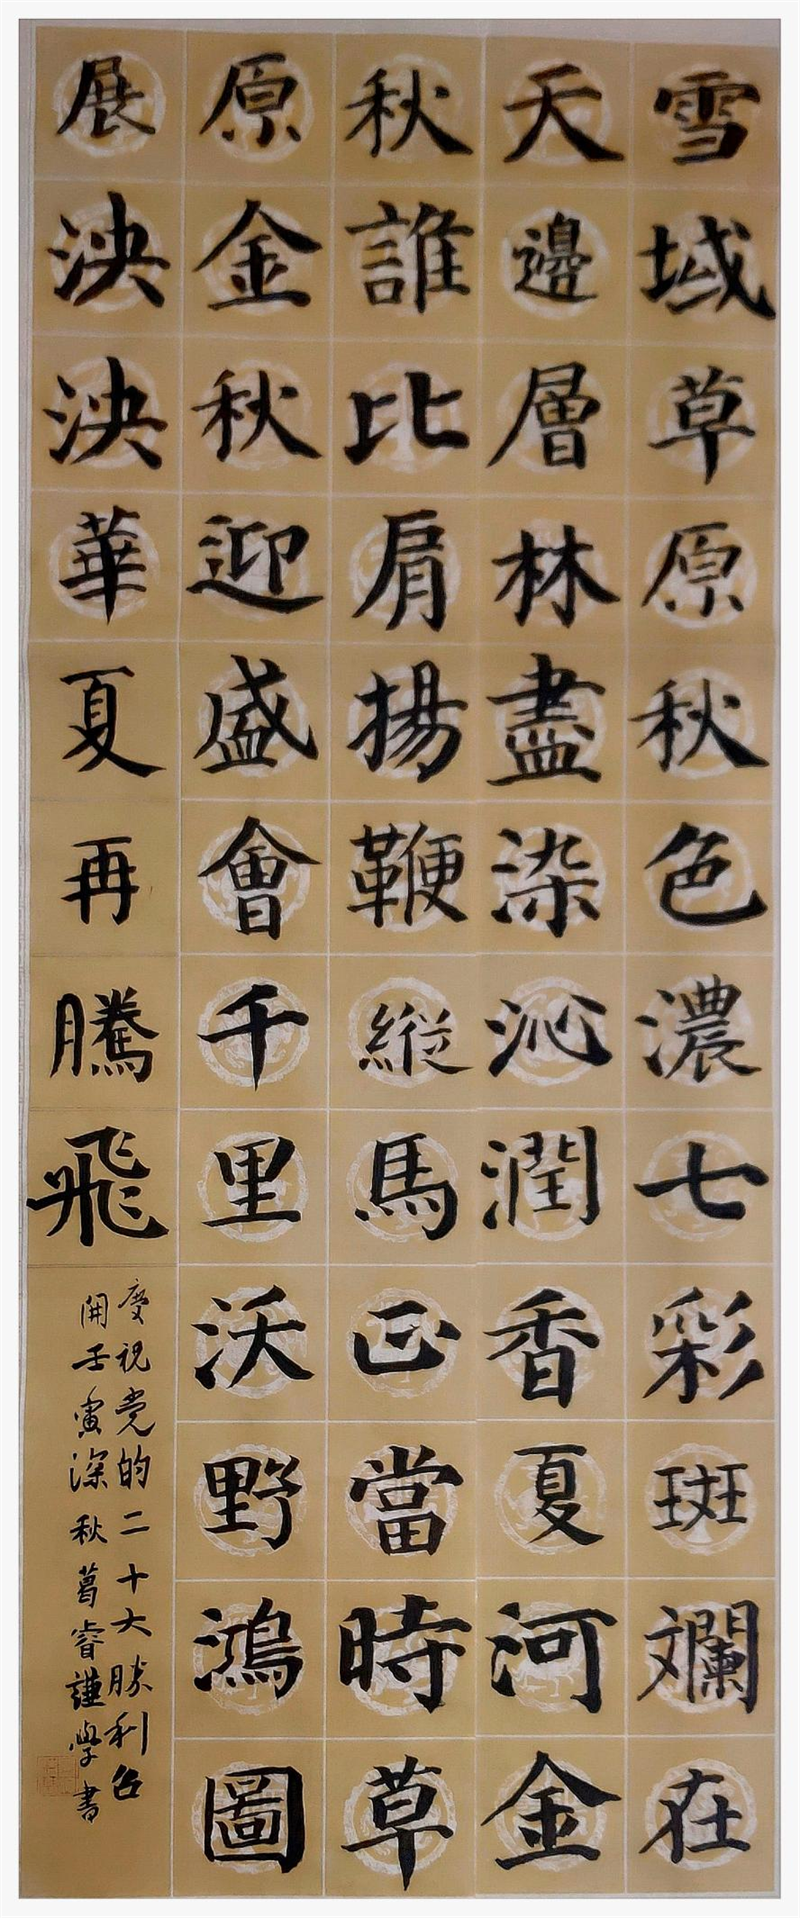 雪域草原秋色濃七彩斑斕在
天邊層林盡染沁潤香夏河金
秋誰比肩揚鞭縱馬正當時草
原金秋迎盛會千里沃野鴻圖
展泱泱華夏再騰飛
庆祝党的二十大勝利召
開壬寅深秋葛睿謹學書